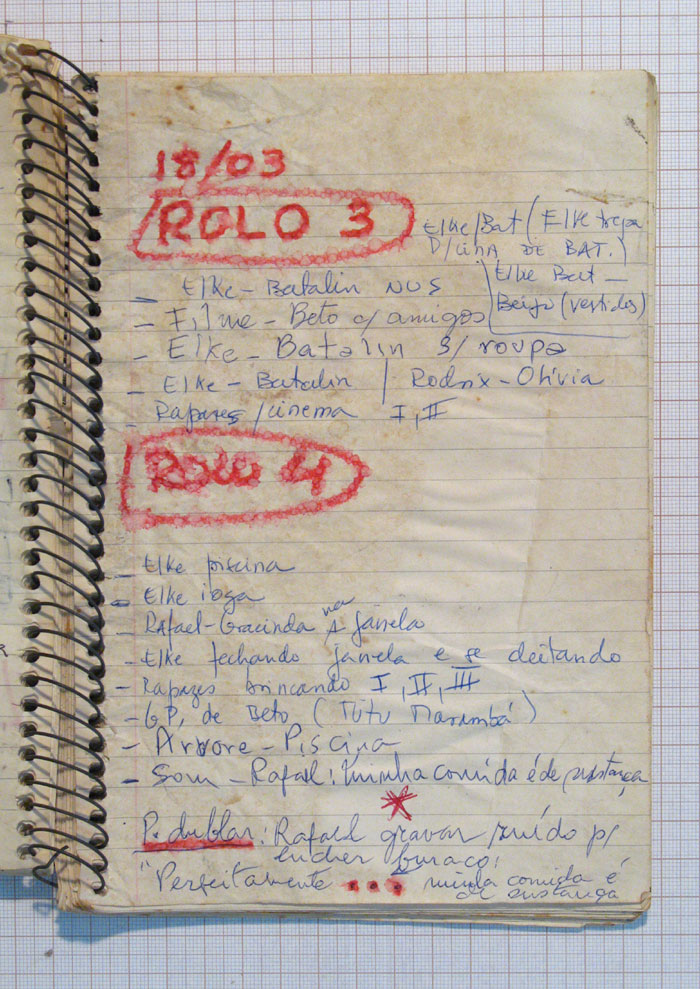 18/03
ROLO 3
Elke/Bat (Elke trepa
P/cima DE BAT.)
Elke Bat –
Beijo (vestidos)
– Elke – Batalin NUS
– Filme – Beto c/ amigos
– Elke – Batalin s/ roupa
– Elke – Batalin / Rodrix – Olivia
– Rapazes/cinema I, II
ROLO 4
– Elke piscina
– Elke ioga
– Rafael – Gracinda na janela
– Elke fechando janela e se deitando
– Rapazes brincando I, II, III
– G.P. de Beto (Tutu Marambá)
– Arvore – Piscina
– Som – Rafael: minha comida é de sustança
P. dublar: Rafael gravar ruído p/
encher buraco:
"Perfeitamente ... minha comida é
de sustança